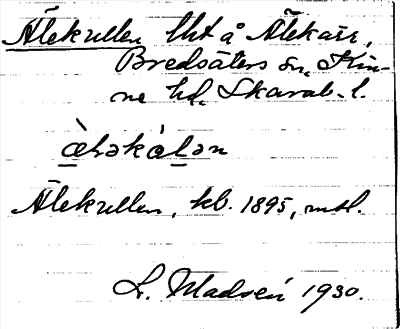 Älekullen lht å Ålekärr,
Bredsäters sn, Kin-
ne hd, Skarab. l.
Älekullen, kb. 1895, mtl.
L. Madsén 1930.